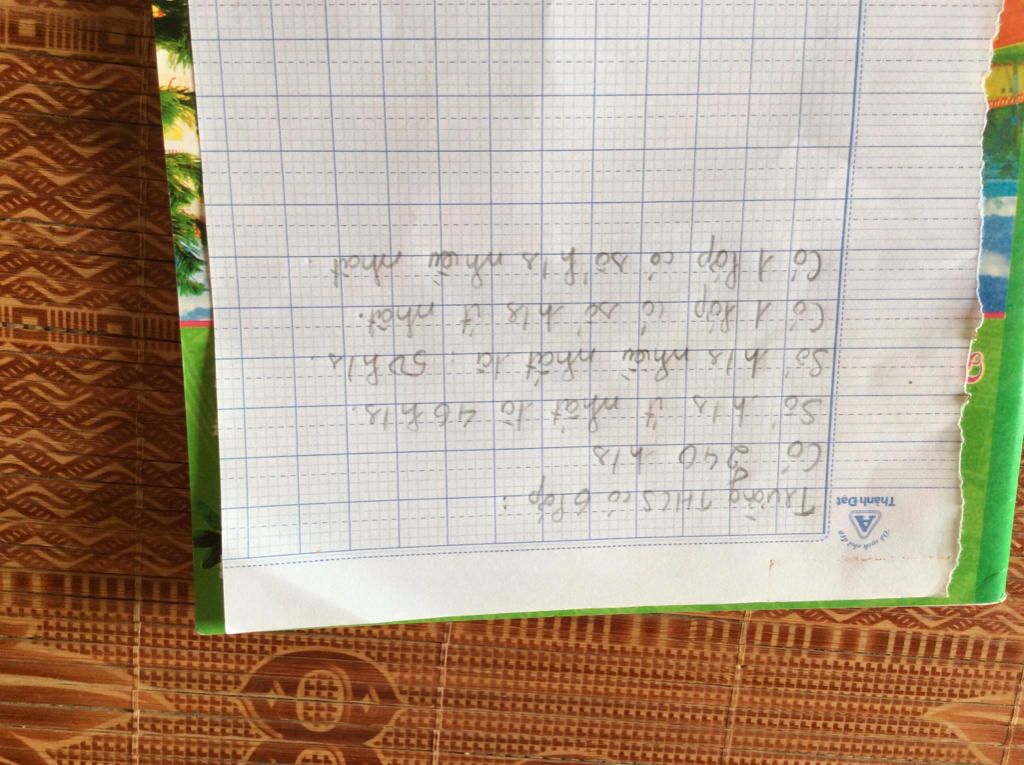 Vở sạch chữ đẹp
A
Thành Đạt
Trường THCS có 6 lớp :
Có 240 h/s
Số h/s ít nhất là 46 h/s.
Số h/s nhiều nhất là : 50 h/s.
Có 1 lớp có số h/s ít nhất.
Có 1 lớp có số h/s nhiều nhất.